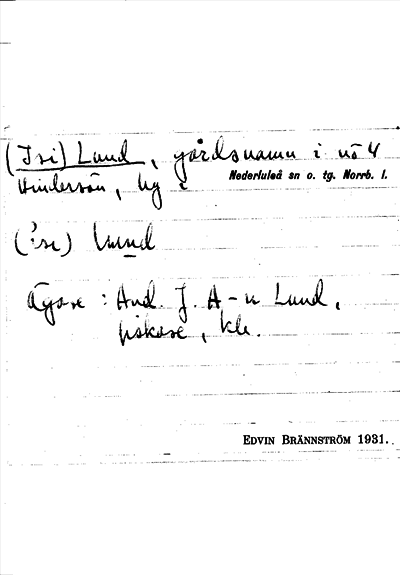 (Isi) Lund, gårdsnamn i nö 4
Hindersön, by i Nederluleå sn o. tg. Norrb. l.
Lund
Ägare: And. J. A-n Lund,
fiskare, kle.
EDVIN BRÄNNSTRÖM 1931.